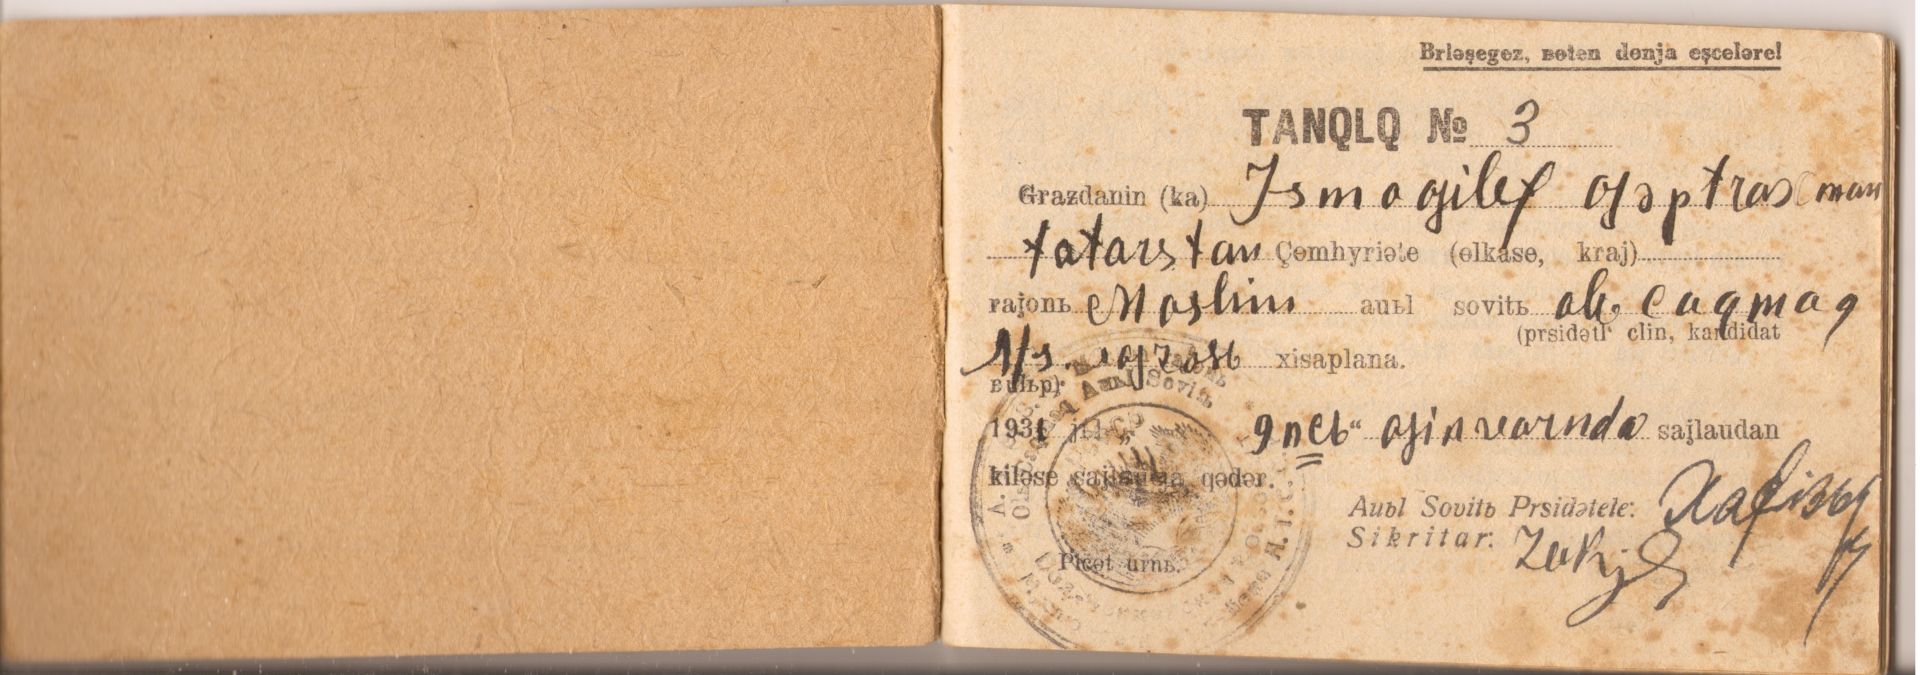 Brləşegez, ʙɵten dɵnja eşcelәre!
TANQLQ № 3
Grazdanin (ka) Ismaƣilef Ƣәptrax man
tatarstan Çɵmhyriәte (ɵlkәse, kraj)
rajonь Mɵslim auьl sovitь olь caqmaq
(prsidәtl clin, kandidat
A/s. xisaplana.
ʙulьp)
1931 jьl 9nсь ƣinvarnda sajlaudan
kilәse sajlauƣa qәdәr.
Auьl Sovitь Prsidәtele: Xafizьf
Sikritar: Zakij
Picәt urnь.
Auьl Sovitь